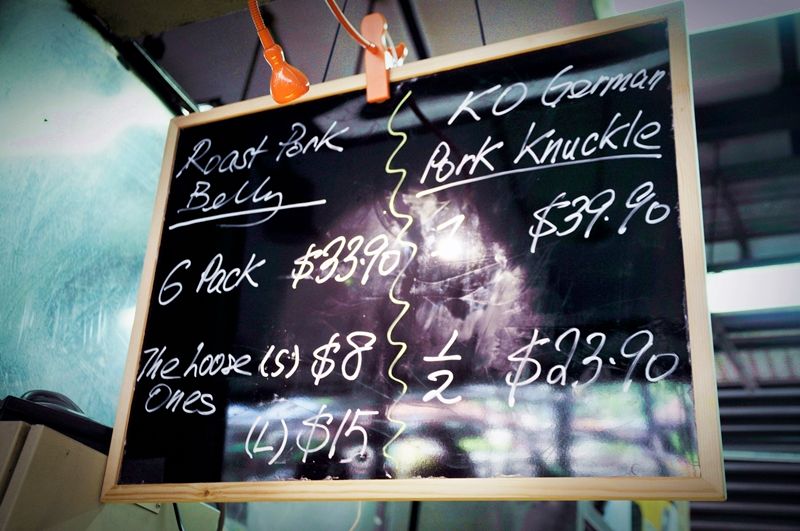 Roast Pork
Belly
6 Pack $33.90
The Loose (S) $8
Ones
(L) $15
KO German
Pork Knuckle
1 $39.90
1/2 $23.90